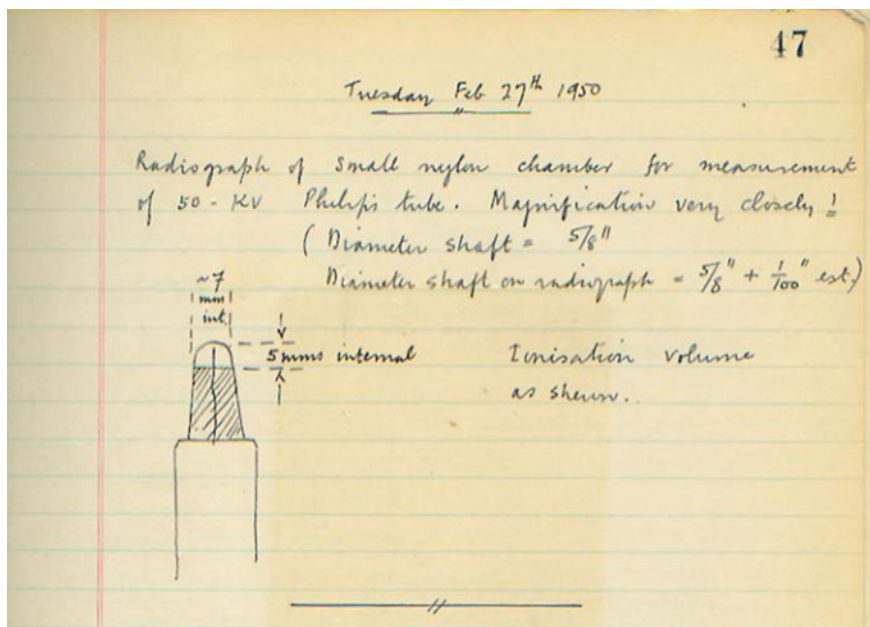 47
Tuesday Feb 27th 1950
Radiograph of small nylon chamber for measurement
of 50-KV Philips tube. Magnification very closely 1
( Diameter shaft = 5/8"
Diameter shaft on radiograph = 5/8" + 1/100" est.)
~7
mm
int.
5 mms internal
Ionisation volume
as shewn.